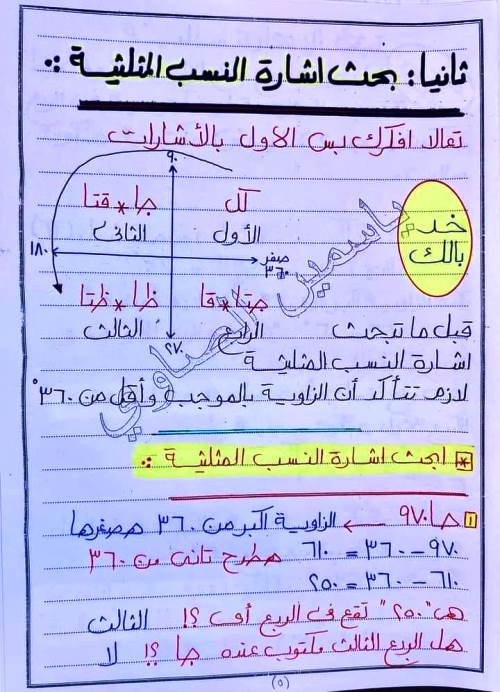 ثانيا: بحث اشارة النسب المثلثية :.
تعالا افكرك بس الاول بالأشارات
٩٠
كل
جا * قتا
خد بالك
الأول
الثانى
١٨٠
صفر
٣٦٠
جتا * قا
ظا * ظتا
الرابع
الثالث
٢٧٠
قبل ما تبحث
اشارة النسب المثلثية
لازم تتأكد أن الزاوية بالموجب وأقل من ٣٦٠°
* ابحث اشارة النسب المثلثية :.
١ جا ٩٧٠ ← الزاوية اكبر من ٣٦٠ هصغرها
٩٧٠ - ٣٦٠ = ٦١٠ هطرح تانى من ٣٦٠
٦١٠ - ٣٦٠ = ٢٥٠
هى "٢٥٠" تقع فى الربع أى ؟! الثالث
هل الربع الثالث مكتوب عنده جا ؟! لا
(٥)
ياسمين